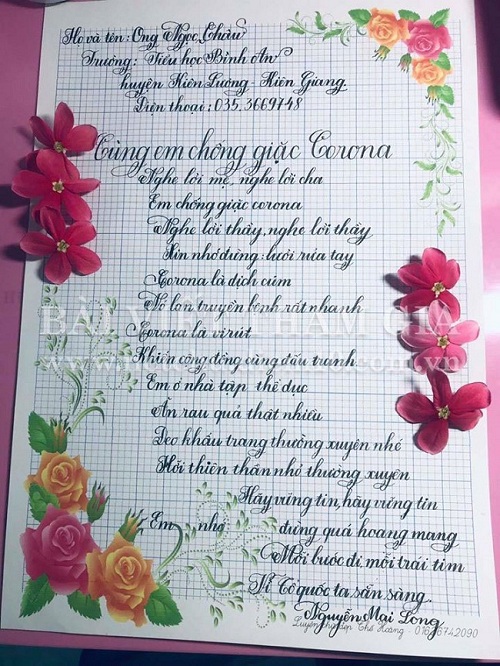 Họ và tên: Ong Ngọc Châu
Trường: Tiểu học Bình An
huyện Kiên Lương - Kiên Giang
Điện thoại: 035.3669748
Cùng em chống giặc Corona
Nghe lời mẹ, nghe lời cha
Em chống giặc corona
Nghe lời thầy, nghe lời thầy
Xin nhớ đừng lười rửa tay
Corona là dịch cúm
Nó lan truyền bệnh rất nhanh
Corona là virút
Khiến cộng đồng cùng đấu tranh
Em ở nhà tập thể dục
Ăn rau quả thật nhiều
Đeo khẩu trang thường xuyên nhé
Hỡi thiên thần nhỏ thương xuyên
Hãy vững tin, hãy vững tin
Em nhớ đừng quá hoang mang
Mỗi bước đi, mỗi trái tim
Vì Tổ quốc ta sẵn sàng
Nguyễn Mai Long
BÀI VIẾT THAM GIA